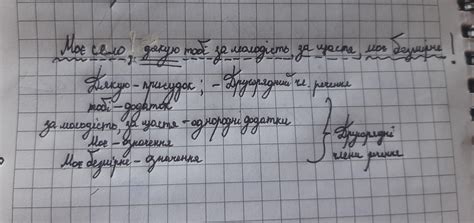 Моє село, дякую тобі за молодість, за щастя, моє безмірне!
Дякую – присудок; – Другорядний чл. речення
тобі – додаток
за молодість, за щастя – однорідні додатки
Моє – означення
Моє безмірне – означення
Другорядні
члени речення